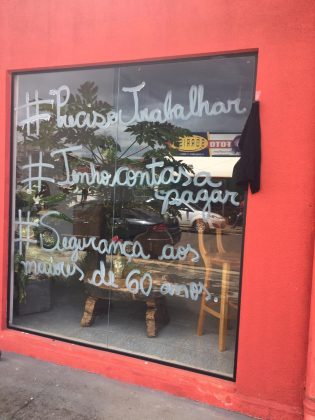 #Preciso Trabalhar
#Tenho contas a
pagar
#Segurança aos
maiores de 60 anos.